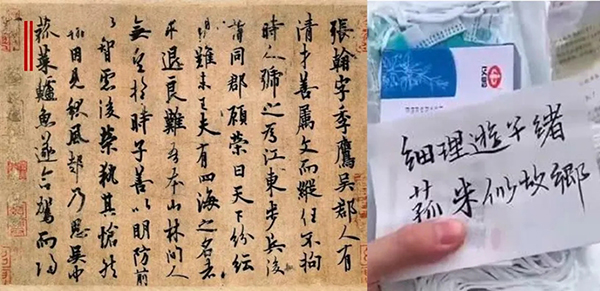 張翰字季鷹吳郡人有
清才善屬文而縱任不拘
時人號之為江東步兵後
謂同郡顧榮曰天下紛紜
禍難未已夫有四海之名者
求退良難吾本山林間人
無望於時子善以明防前
以智慮後榮執其愴然
翰因見秋風起乃思吳中
菰菜鱸魚遂命駕而歸
細理遊子緒
菰米似故鄉